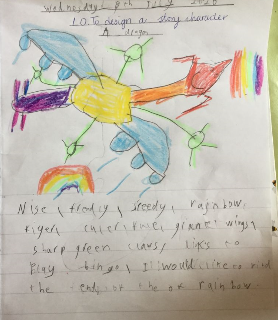 Wednesday 8th July 2020
L.O. To design a story character
A dragon
Nise, frendly, speedy, rainbow
giant wings,
sharp green claws, likes to
Play bingo, I would like to
the end of the of rainbow